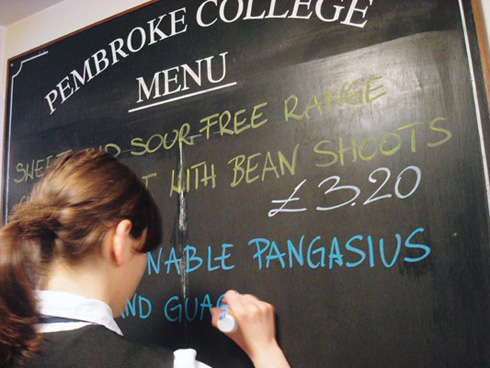 PEMBROKE COLLEGE
MENU
SWEET AND SOUR FREE RANGE
WITH BEAN SHOOTS
£3.20
NABLE PANGASIUS
AND GUAC